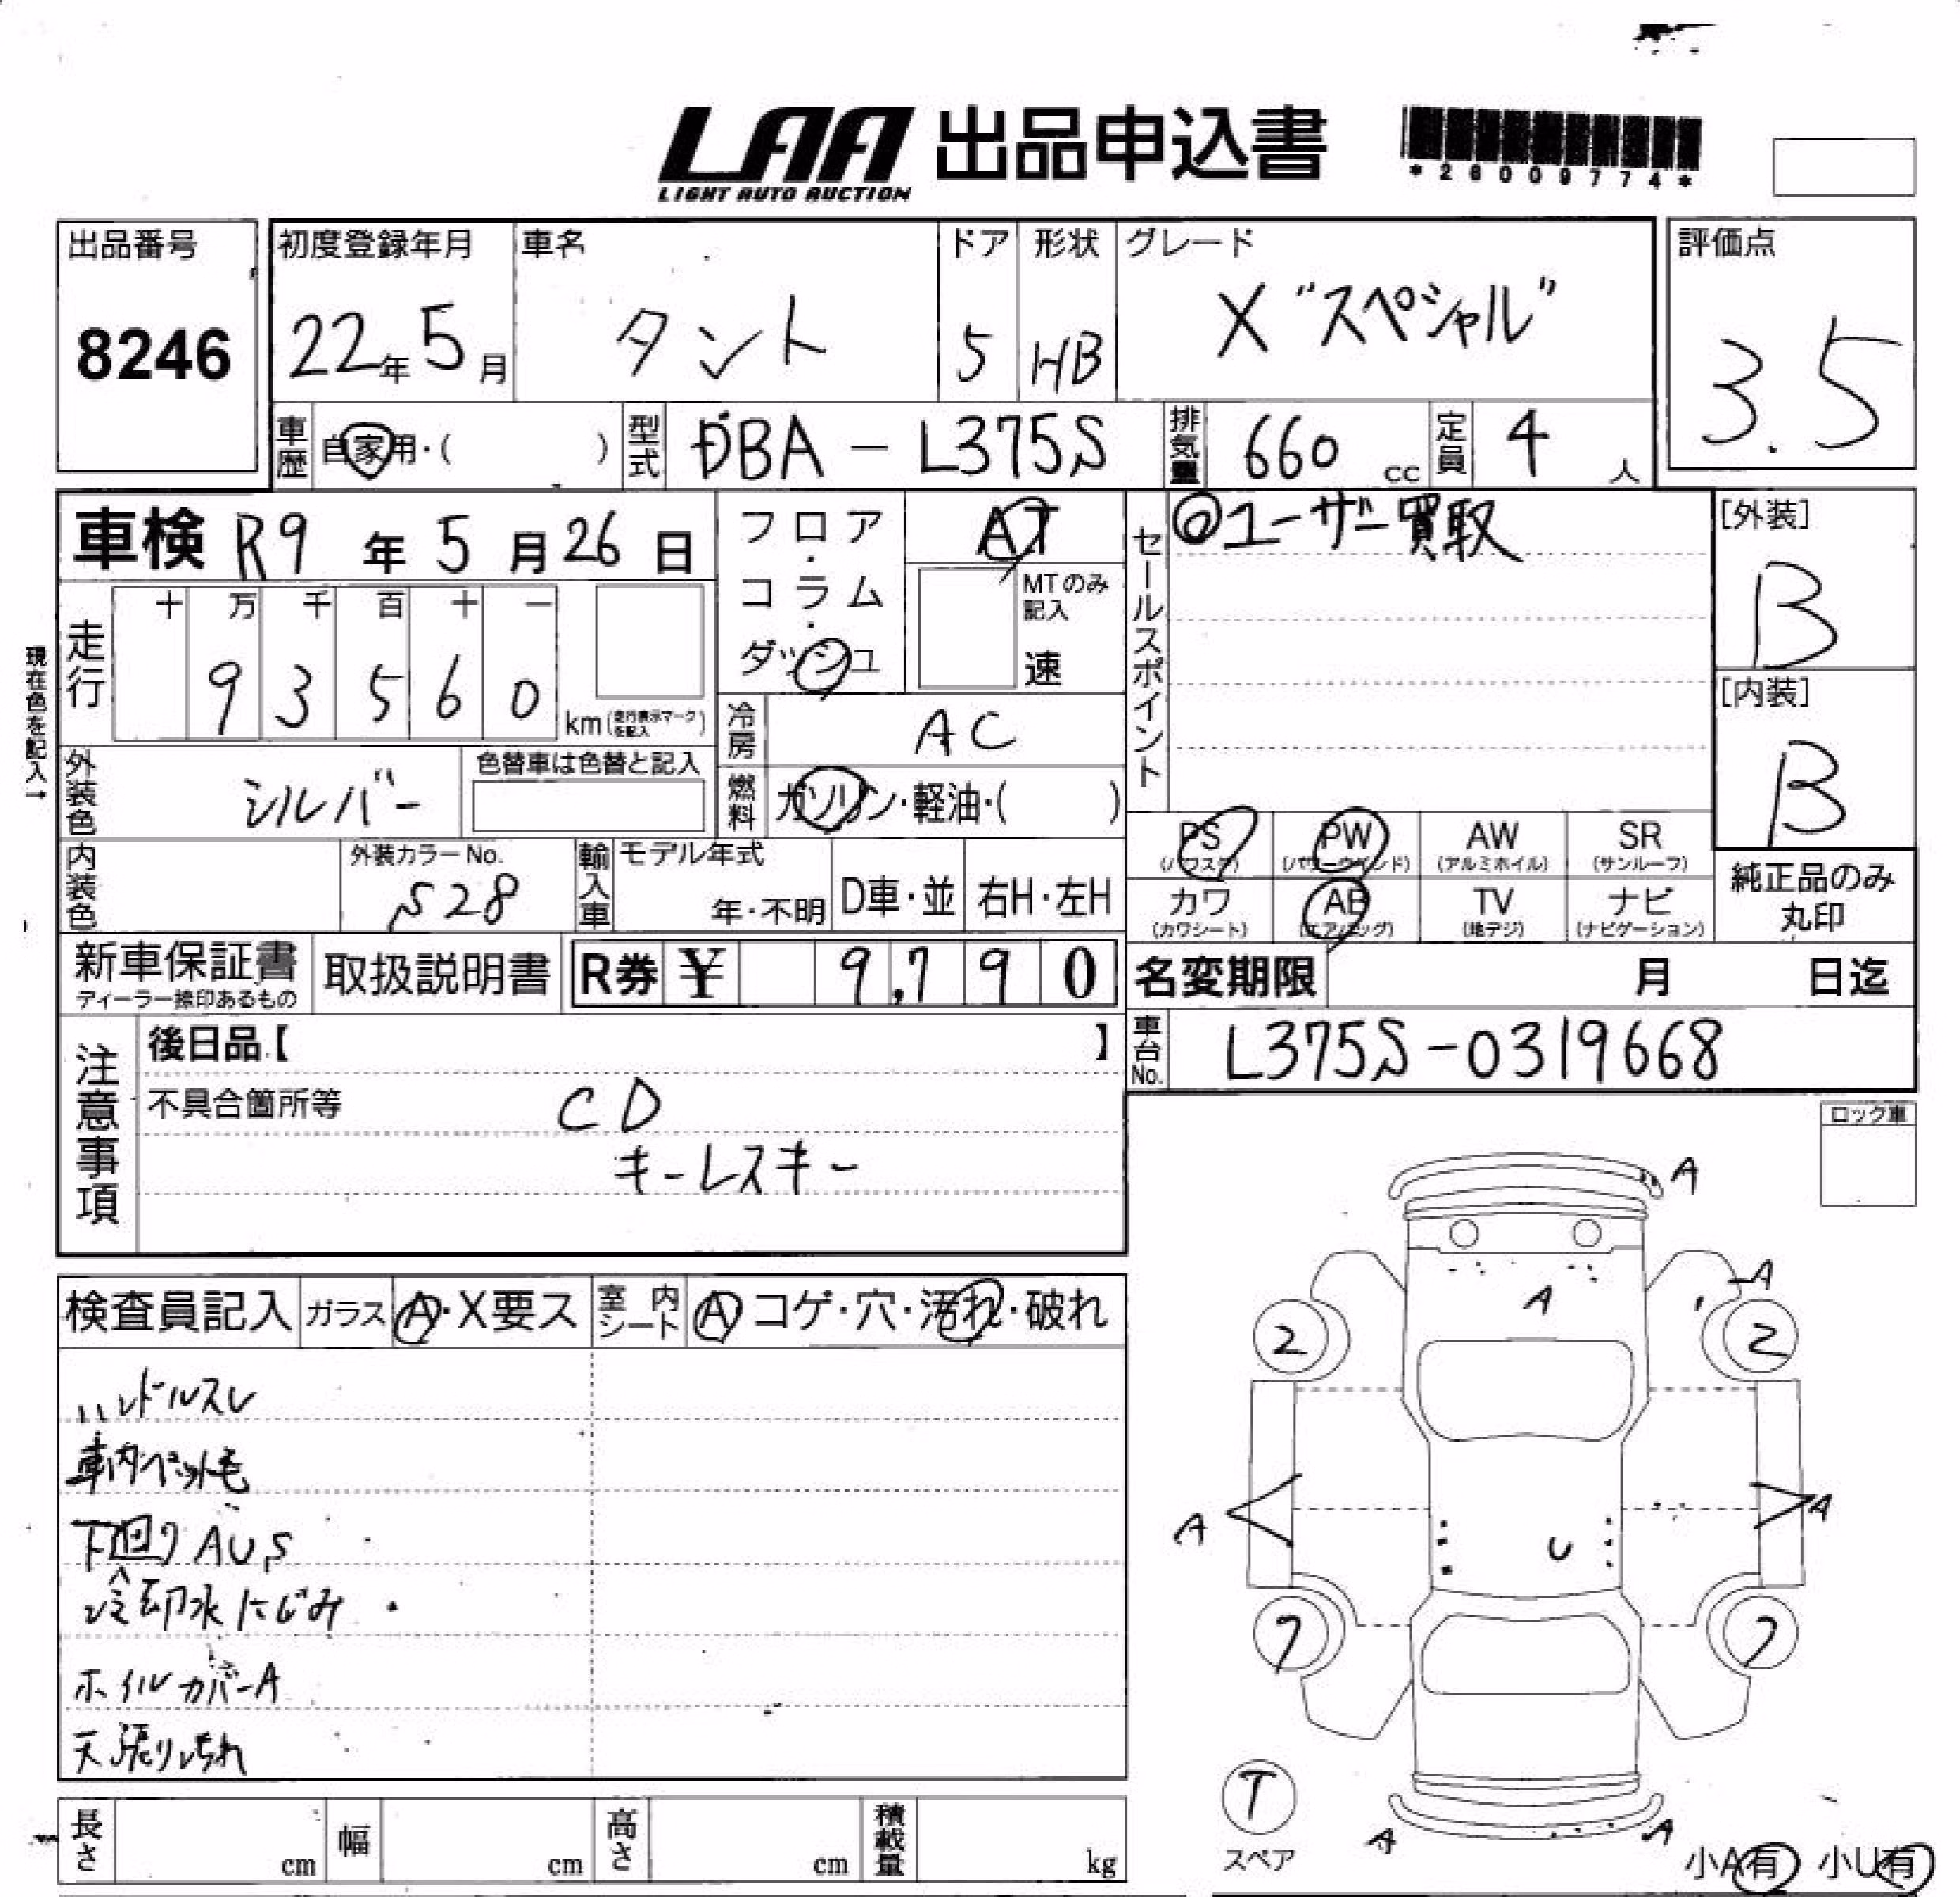 LAA 出品申込書
LIGHT AUTO AUCTION
*26009774*
出品番号
8246
初度登録年月
22年5月
車名
タント
ドア
5
形状
HB
グレード
X "スペシャル"
評価点
3.5
車歴
自家用・( )
型式
DBA-L375S
排気量
660 cc
定員
4 人
車検 R9年5月26日
フロア・コラム・ダッシュ
AT
MTのみ記入
速
セールスポイント
◎ユーザー買取
[外装]
B
[内装]
B
現在色を記入→
走行
十 万 千 百 十 一
9 3 5 6 0
km(走行表示マークを記入)
冷房
AC
外装色
シルバー
色替車は色替と記入
燃料
ガソリン・軽油・( )
PS
(パワステ)
PW
(パワーウインド)
AW
(アルミホイル)
SR
(サンルーフ)
内装色
外装カラーNo.
S28
輸入車
モデル年式
年・不明
D車・並
右H・左H
カワ
(カワシート)
AB
(エアバッグ)
TV
(地デジ)
ナビ
(ナビゲーション)
純正品のみ丸印
新車保証書
ディーラー捺印あるもの
取扱説明書
R券 ¥ 9,790
名変期限 月 日迄
注意事項
後日品【 】
車台No.
L375S-0319668
不具合箇所等
CD
キーレスキー
ロック車
検査員記入
ガラス
A・X要ス
室内シート
A コゲ・穴・汚れ・破れ
ハンドルスレ
車内ペット毛
下回りAUS
冷却水にじみ
ホイルカバーA
天張り汚れ
A
A
A
2
2
A
A
U
7
7
T
スペア
A
A
小A有 小U有
長さ
cm
幅
cm
高さ
cm
積載量
kg